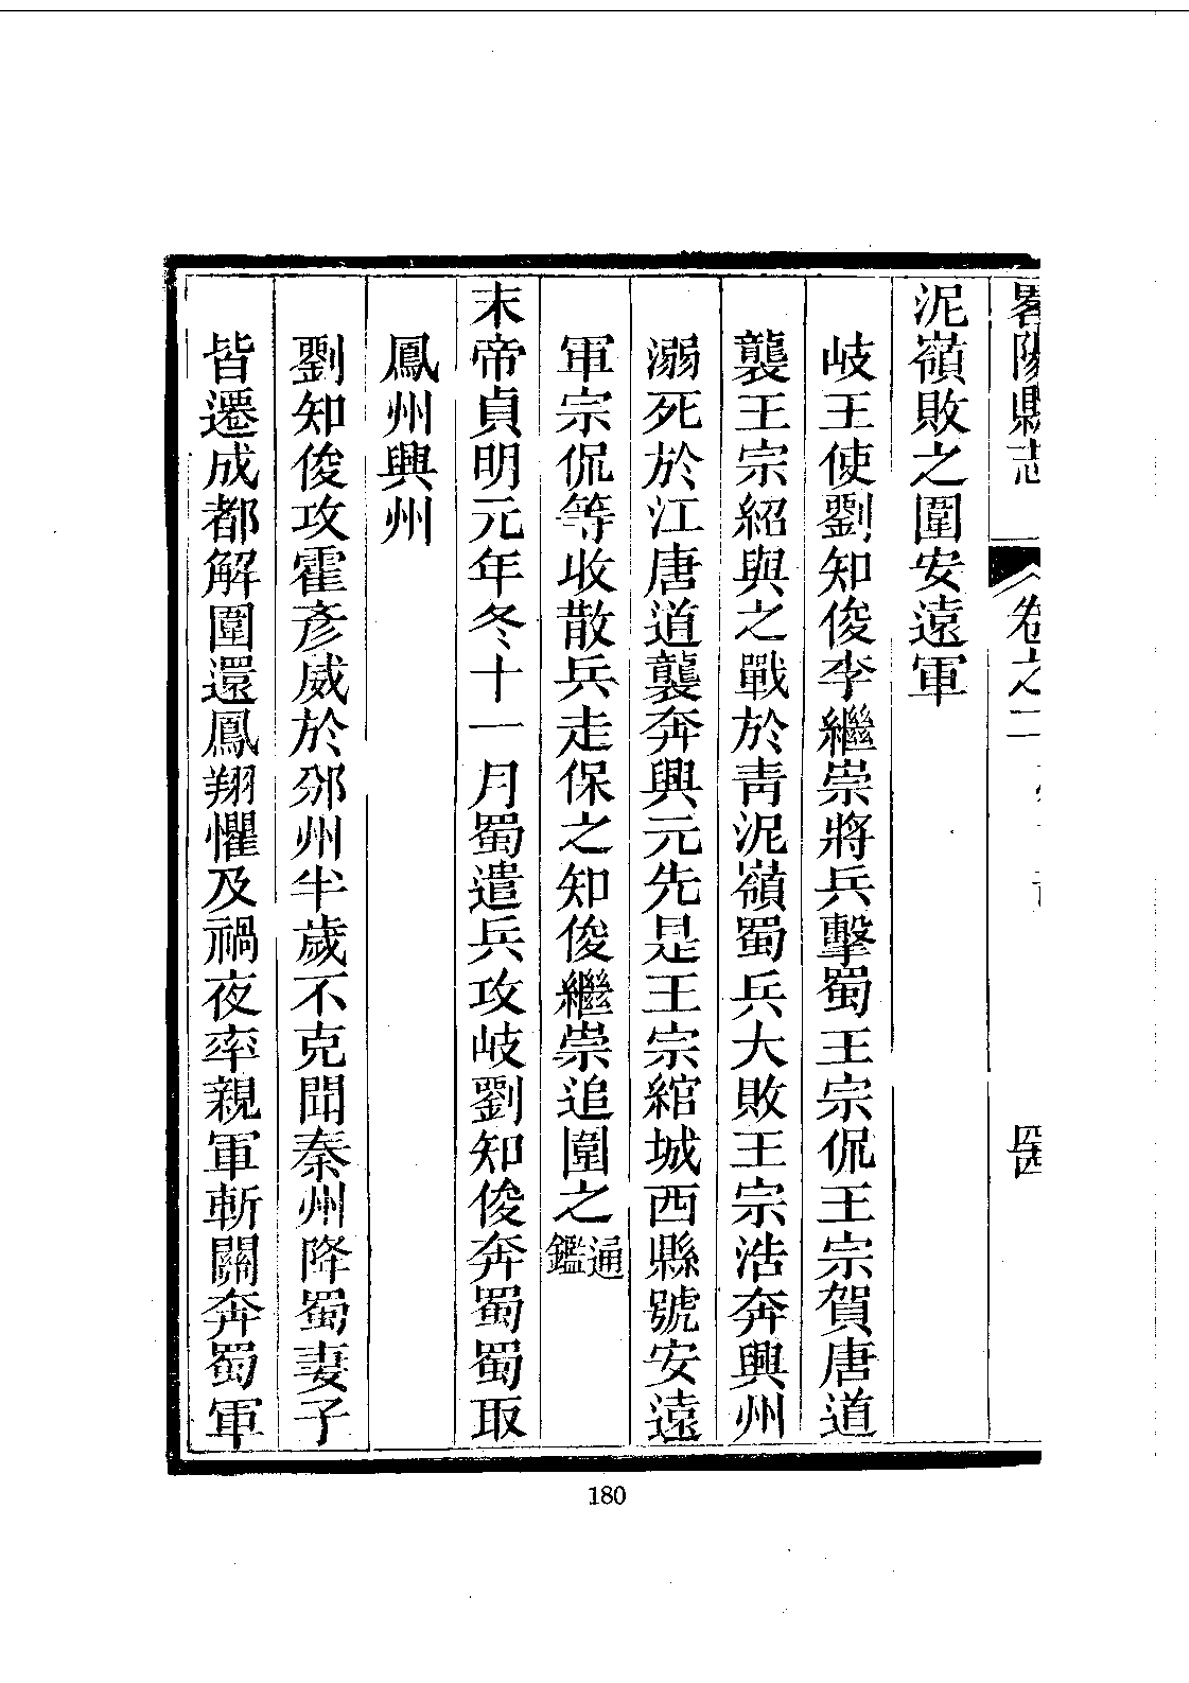 畧陽縣志 卷之二 四
泥嶺敗之圍安遠軍
岐王使劉知俊李繼崇將兵擊蜀王宗侃王宗賀唐道
襲王宗紹與之戰於靑泥嶺蜀兵大敗王宗浩奔興州
溺死於江唐道襲奔興元先是王宗綰城西縣號安遠
軍宗侃等收散兵走保之知俊繼崇追圍之通鑑
末帝貞明元年冬十一月蜀遣兵攻岐劉知俊奔蜀蜀取
鳳州興州
劉知俊攻霍彥威於邠州半歲不克聞秦州降蜀妻子
皆遷成都解圍還鳳翔懼及禍夜率親軍斬關奔蜀軍
180